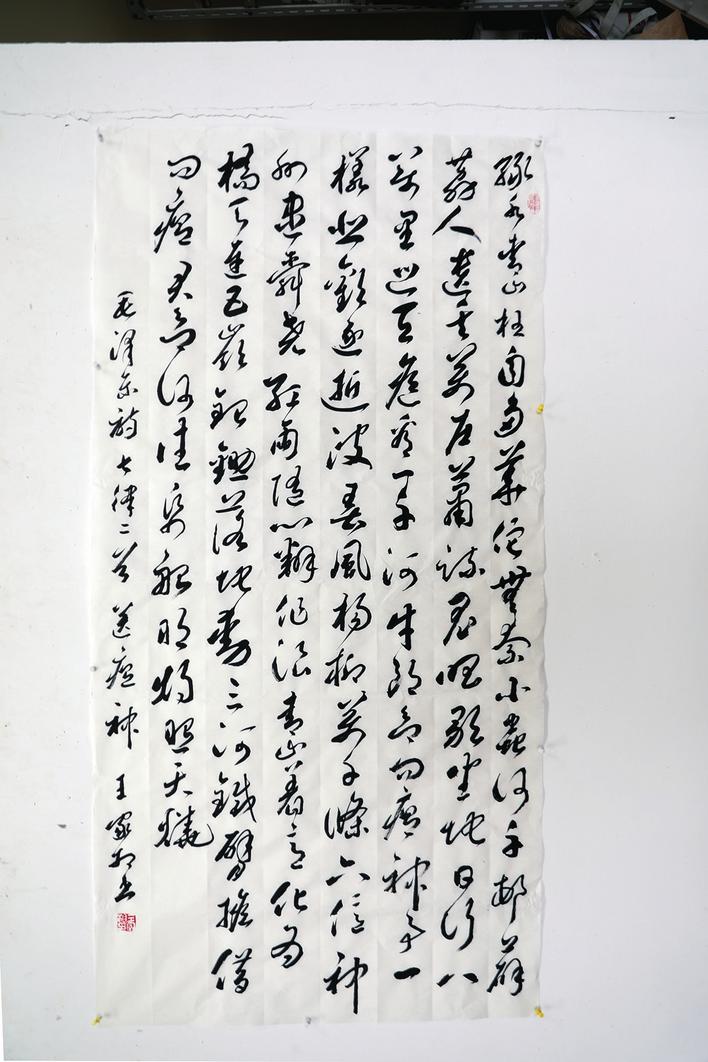 綠水青山枉自多華佗無奈小蟲何千邨薜
荔人遺矢萬戶蕭疏鬼唱歌坐地日行八
萬里巡天遙看一千河牛郎欲問瘟神事一
樣悲歡逐逝波春風楊柳萬千條六億神
州盡舜堯紅雨隨心翻作浪青山着意化為
橋天連五嶺銀鋤落地動三河鐵臂搖借
問瘟君欲何往紙船明燭照天燒
毛澤東詩七律二首 送瘟神 王家書